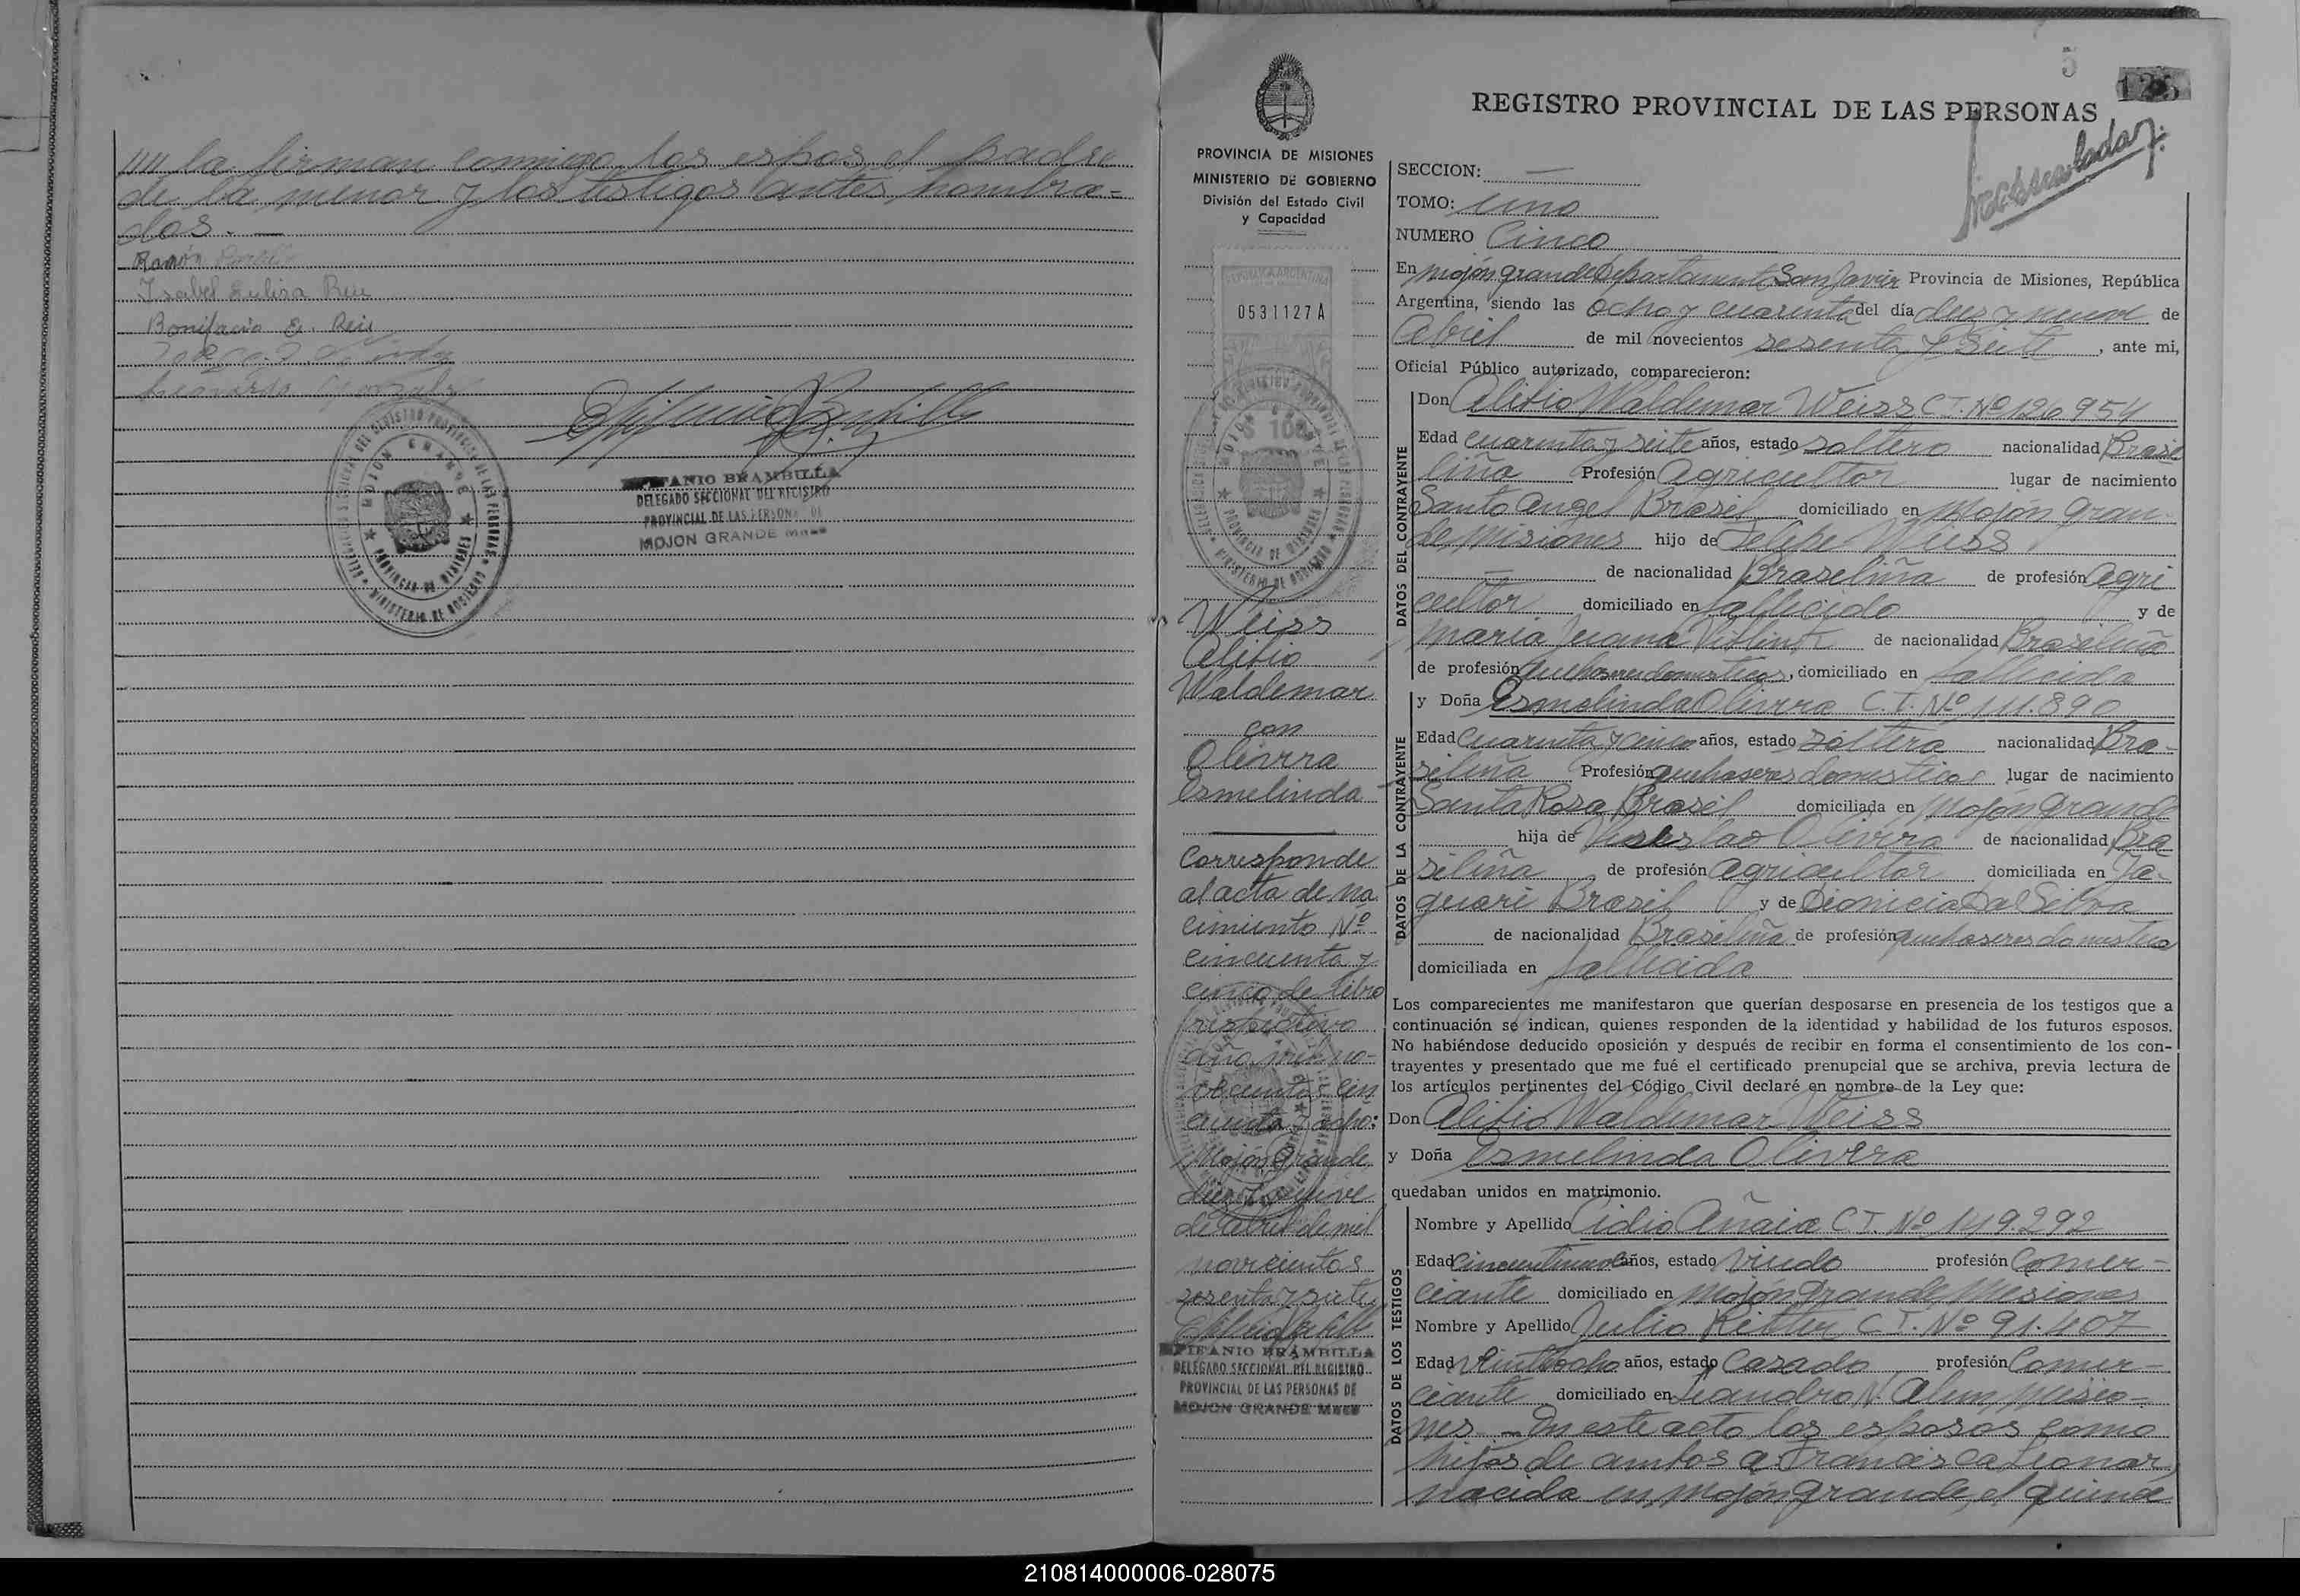 //// la firman conmigo los espos el padre
de la menor y los testigos antes nombra=
dos. —
Ramón
Isabel Reis
Bonifacio E. Reis
EPIFANIO BRAMBILLA
DELEGADO SECCIONAL DEL REGISTRO
PROVINCIAL DE LAS PERSONAS DE
MOJON GRANDE Mnes
5
REGISTRO PROVINCIAL DE LAS PERSONAS
PROVINCIA DE MISIONES
MINISTERIO DE GOBIERNO
División del Estado Civil
y Capacidad
REPUBLICA ARGENTINA
0531127 A
MOJON GRANDE
PROVINCIA DE MISIONES
Weiss
Alibio
Waldemar
con
Olivera
Esmelinda
Corresponde
al acta de na
cimiento Nº
cincuenta y
cinco de libro
respectivo
año mil no-
vecientos cin
cuenta y ocho:
Mojón Grande,
diez y nueve
de Abril de mil
novecientos
sesenta y siete
EPIFANIO BRAMBILLA
DELEGADO SECCIONAL DEL REGISTRO
PROVINCIAL DE LAS PERSONAS DE
MOJON GRANDE Mnes
SECCION: —
TOMO: Uno
NUMERO Cinco
En Mojón grande Departamento San Javier Provincia de Misiones, República
Argentina, siendo las ocho y cuarenta del día diez y nueve de
Abril de mil novecientos sesenta y siete, ante mi,
Oficial Público autorizado, comparecieron:
DATOS DEL CONTRAYENTE
Don Alibio Waldemar Weiss C.I. Nº 126954
Edad cuarenta y seite años, estado soltero nacionalidad Brasi
liña Profesión Agricultor lugar de nacimiento
Santo Angel Brasil domiciliado en Mojón Gran
de Misiones hijo de Felipe Weiss
— de nacionalidad Brasileña de profesión Agri
cultor domiciliado en fallecido y de
Maria Juana de nacionalidad Brasileña
de profesión quehaseres domesticos, domiciliado en fallecida
DATOS DE LA CONTRAYENTE
y Doña Esmelinda Olivera C.I. Nº 111.890
Edad Cuarenta y cinco años, estado soltera nacionalidad Bra-
sileña Profesión quehaseres domesticos lugar de nacimiento
Santa Rosa Brasil domiciliada en Mojón Grande
hija de Olivera de nacionalidad Bra
sileña de profesión agricultor domiciliada en Ja-
guari Brasil y de Dionicia Da Silva
de nacionalidad Brasileña de profesión quehaseres domestico
domiciliada en fallecida
Los comparecientes me manifestaron que querían desposarse en presencia de los testigos que a
continuación se indican, quienes responden de la identidad y habilidad de los futuros esposos.
No habiéndose deducido oposición y después de recibir en forma el consentimiento de los con-
trayentes y presentado que me fué el certificado prenupcial que se archiva, previa lectura de
los artículos pertinentes del Código Civil declaré en nombre de la Ley que:
Don Alibio Waldemar Weiss
y Doña Esmelinda Olivera
quedaban unidos en matrimonio.
DATOS DE LOS TESTIGOS
Nombre y Apellido Cidio Añaia C.I. Nº 149.292
Edad años, estado viudo profesión Comer-
ciante domiciliado en Mojón Grande Misiones
Nombre y Apellido Julio Ritter C.I. Nº 91.407
Edad Veintiocho años, estado Casado profesión Comer-
ciante domiciliado en Leandro N. Alem Misio-
nes — En este acto los esposos como
hijos de ambos a Francisca Leonor,
nacida en Mojón grande, el quince
210814000006-028075